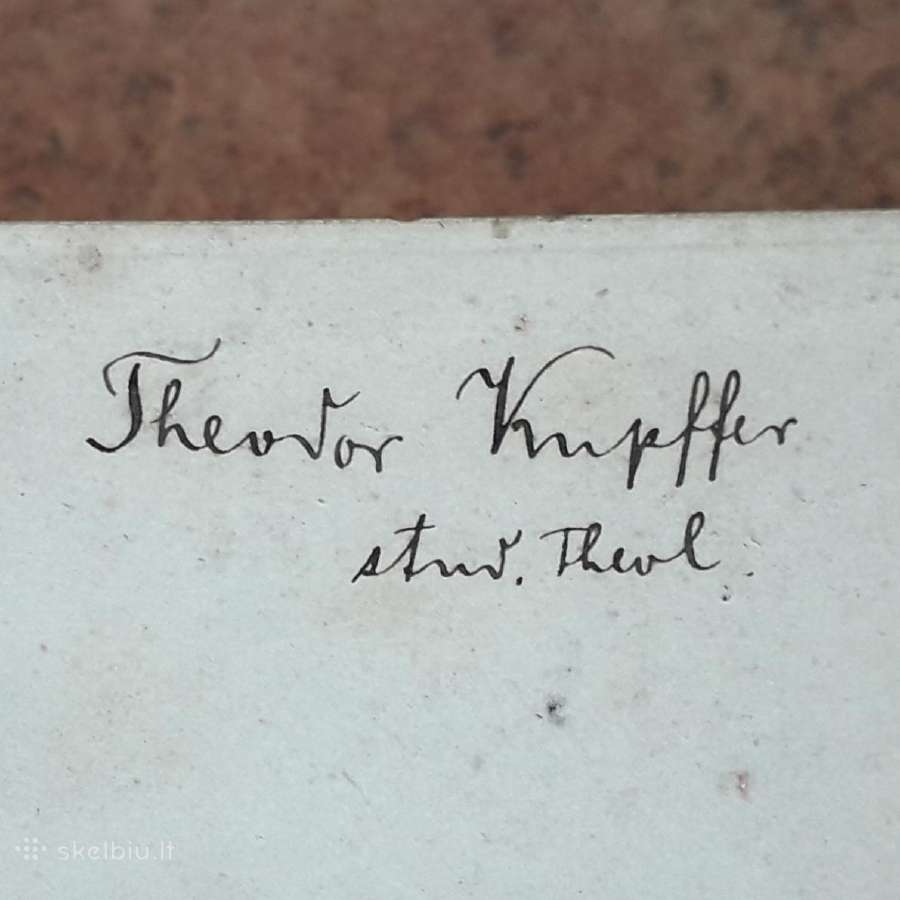 Theodor Kupffer
stud. Theol.
skelbiu.lt